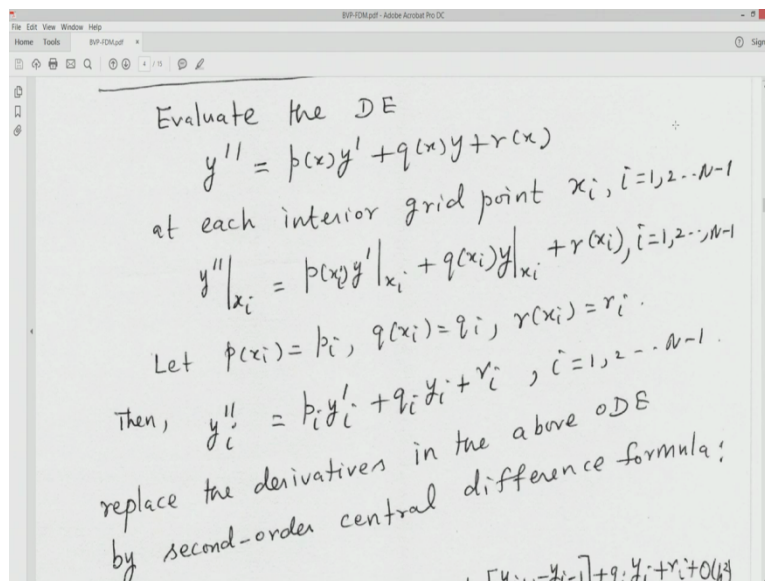 BVP-FDM.pdf - Adobe Acrobat Pro DC
File Edit View Window Help
Home Tools BVP-FDM.pdf × Sign
4 / 15
Evaluate the DE
y'' = p(x)y' + q(x)y + r(x)
at each interior grid point xᵢ, i=1,2--N-1
y''|xᵢ = p(xᵢ)y'|xᵢ + q(xᵢ)y|xᵢ + r(xᵢ), i=1,2--,N-1
Let p(xᵢ) = pᵢ, q(xᵢ) = qᵢ, r(xᵢ) = rᵢ.
Then, yᵢ'' = pᵢyᵢ' + qᵢyᵢ + rᵢ , i=1,2--·N-1.
replace the derivatives in the above ODE
by second-order central difference formula:
-yᵢ₋₁] + qᵢyᵢ + rᵢ + O(h²)